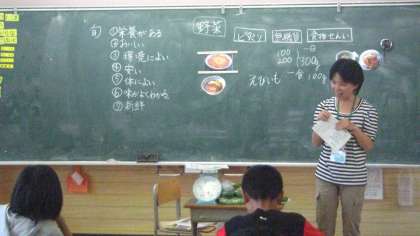 旬
①栄養がある
②おいしい
③環境によい
④安い
⑤体によい
⑥味がよくわかる
⑦新鮮
野菜
ビタミン
無機質
食物せんい
100
200
300g
一日
えびいも 一食 100g